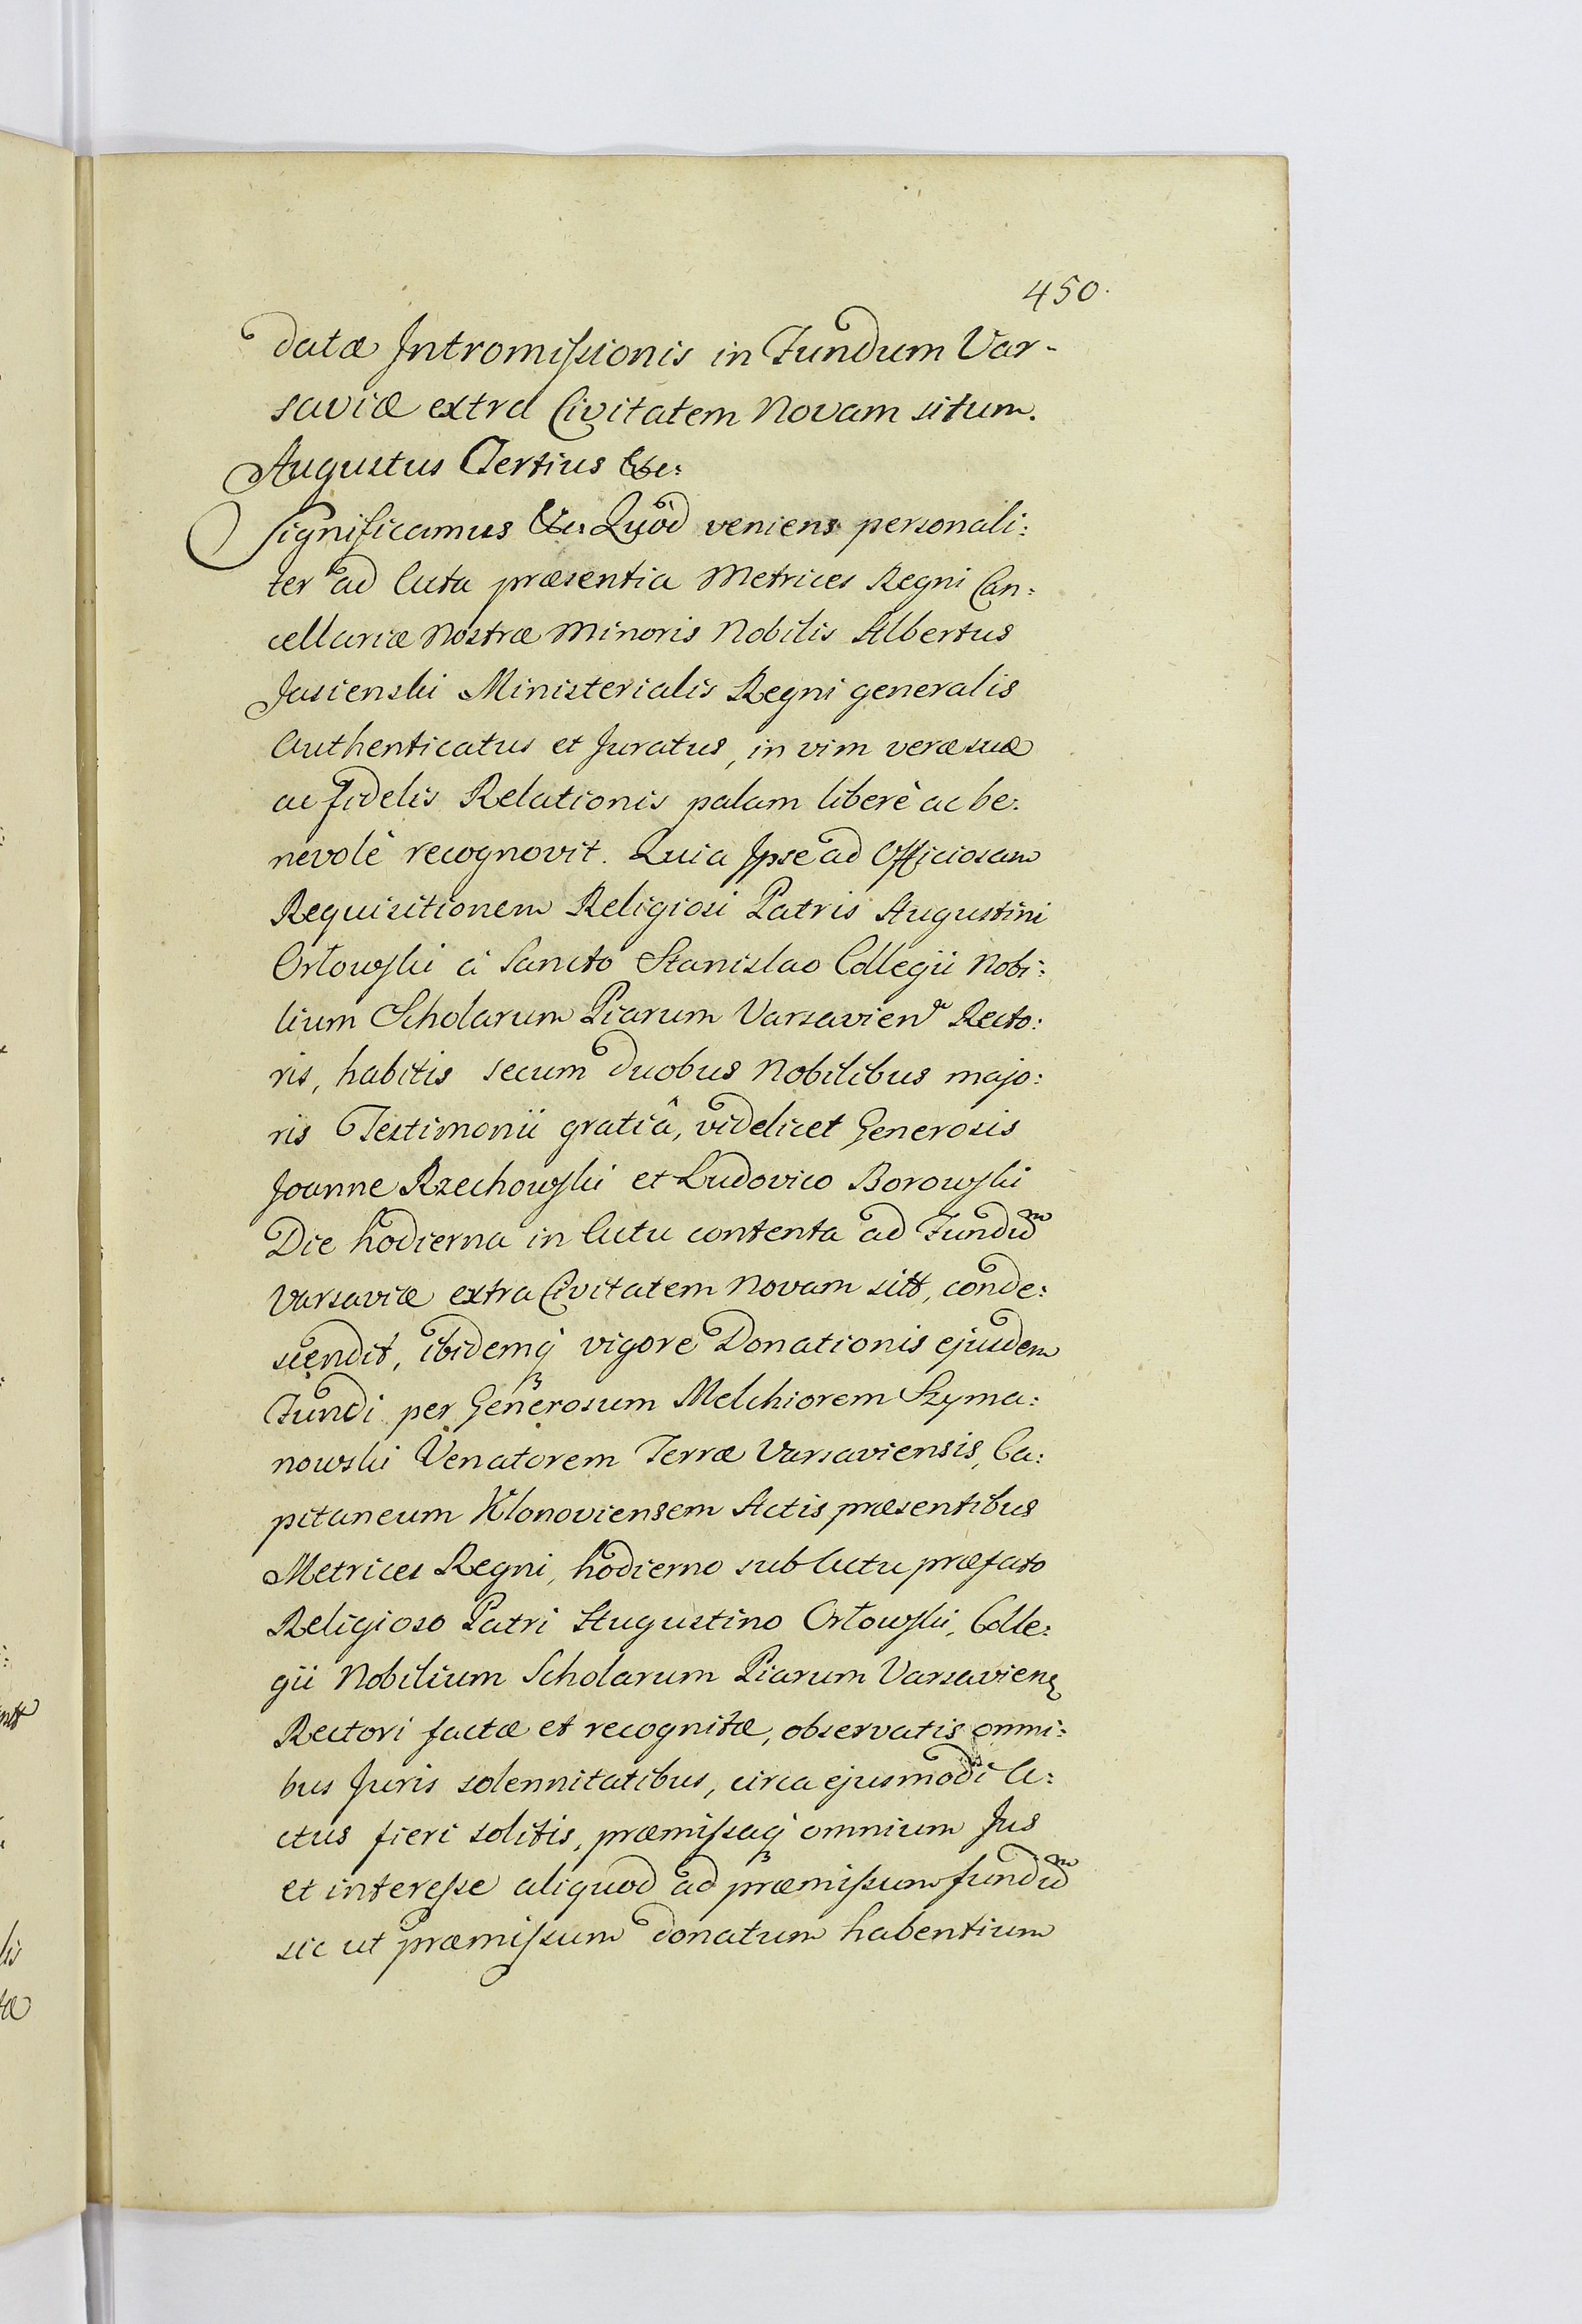 450.
datæ Intromissionis in Fundum Var-
saviæ extra Civitatem Novam situm.
Augustus Tertius &c:
Significamus &c. Quòd veniens personali:
ter ad Acta præsentia Metrices Regni Can:
cellariæ Nostræ Minoris Nobilis Albertus
Jasienski Ministerialis Regni generalis
Authenticatus et Juratus, in vim veræ suæ
ac fidelis Relationis palam liberè ac be:
nevolè recognovit. Quia Ipse ad Officiosam
Requisitionem Religiosi Patris Augustini
Orłowski à Sancto Stanislao Collegii Nobi:
lium Scholarum Piarum Varsavien Recto:
ris, habitis secum duobus Nobilibus majo:
ris Testimonii gratiâ, videlicet Generosis
Joanne Rzechowski et Ludovico Borowski
Die hodierna in Actu contenta ad Fundū
Varsaviæ extra Civitatem Novam sitt, conde:
scendit, ibidemq vigore Donationis ejusdem
Fundi per Generosum Melchiorem Szyma:
nowski Venatorem Terræ Varsaviensis, Ca:
pitaneum Klonoviensem Actis præsentibus
Metrices Regni, hodierno sub Actu præfato
Religioso Patri Augustino Orłowski, Colle:
gii Nobilium Scholarum Piarum Varsavien
Rectori factæ et recognitæ, observatis omni:
bus Juris solennitatibus, circa ejusmodi A:
ctus fieri solitis, præmissaq omnium Jus
et interesse aliquod ad præmissum fundū
sic ut præmissum donatum habentium